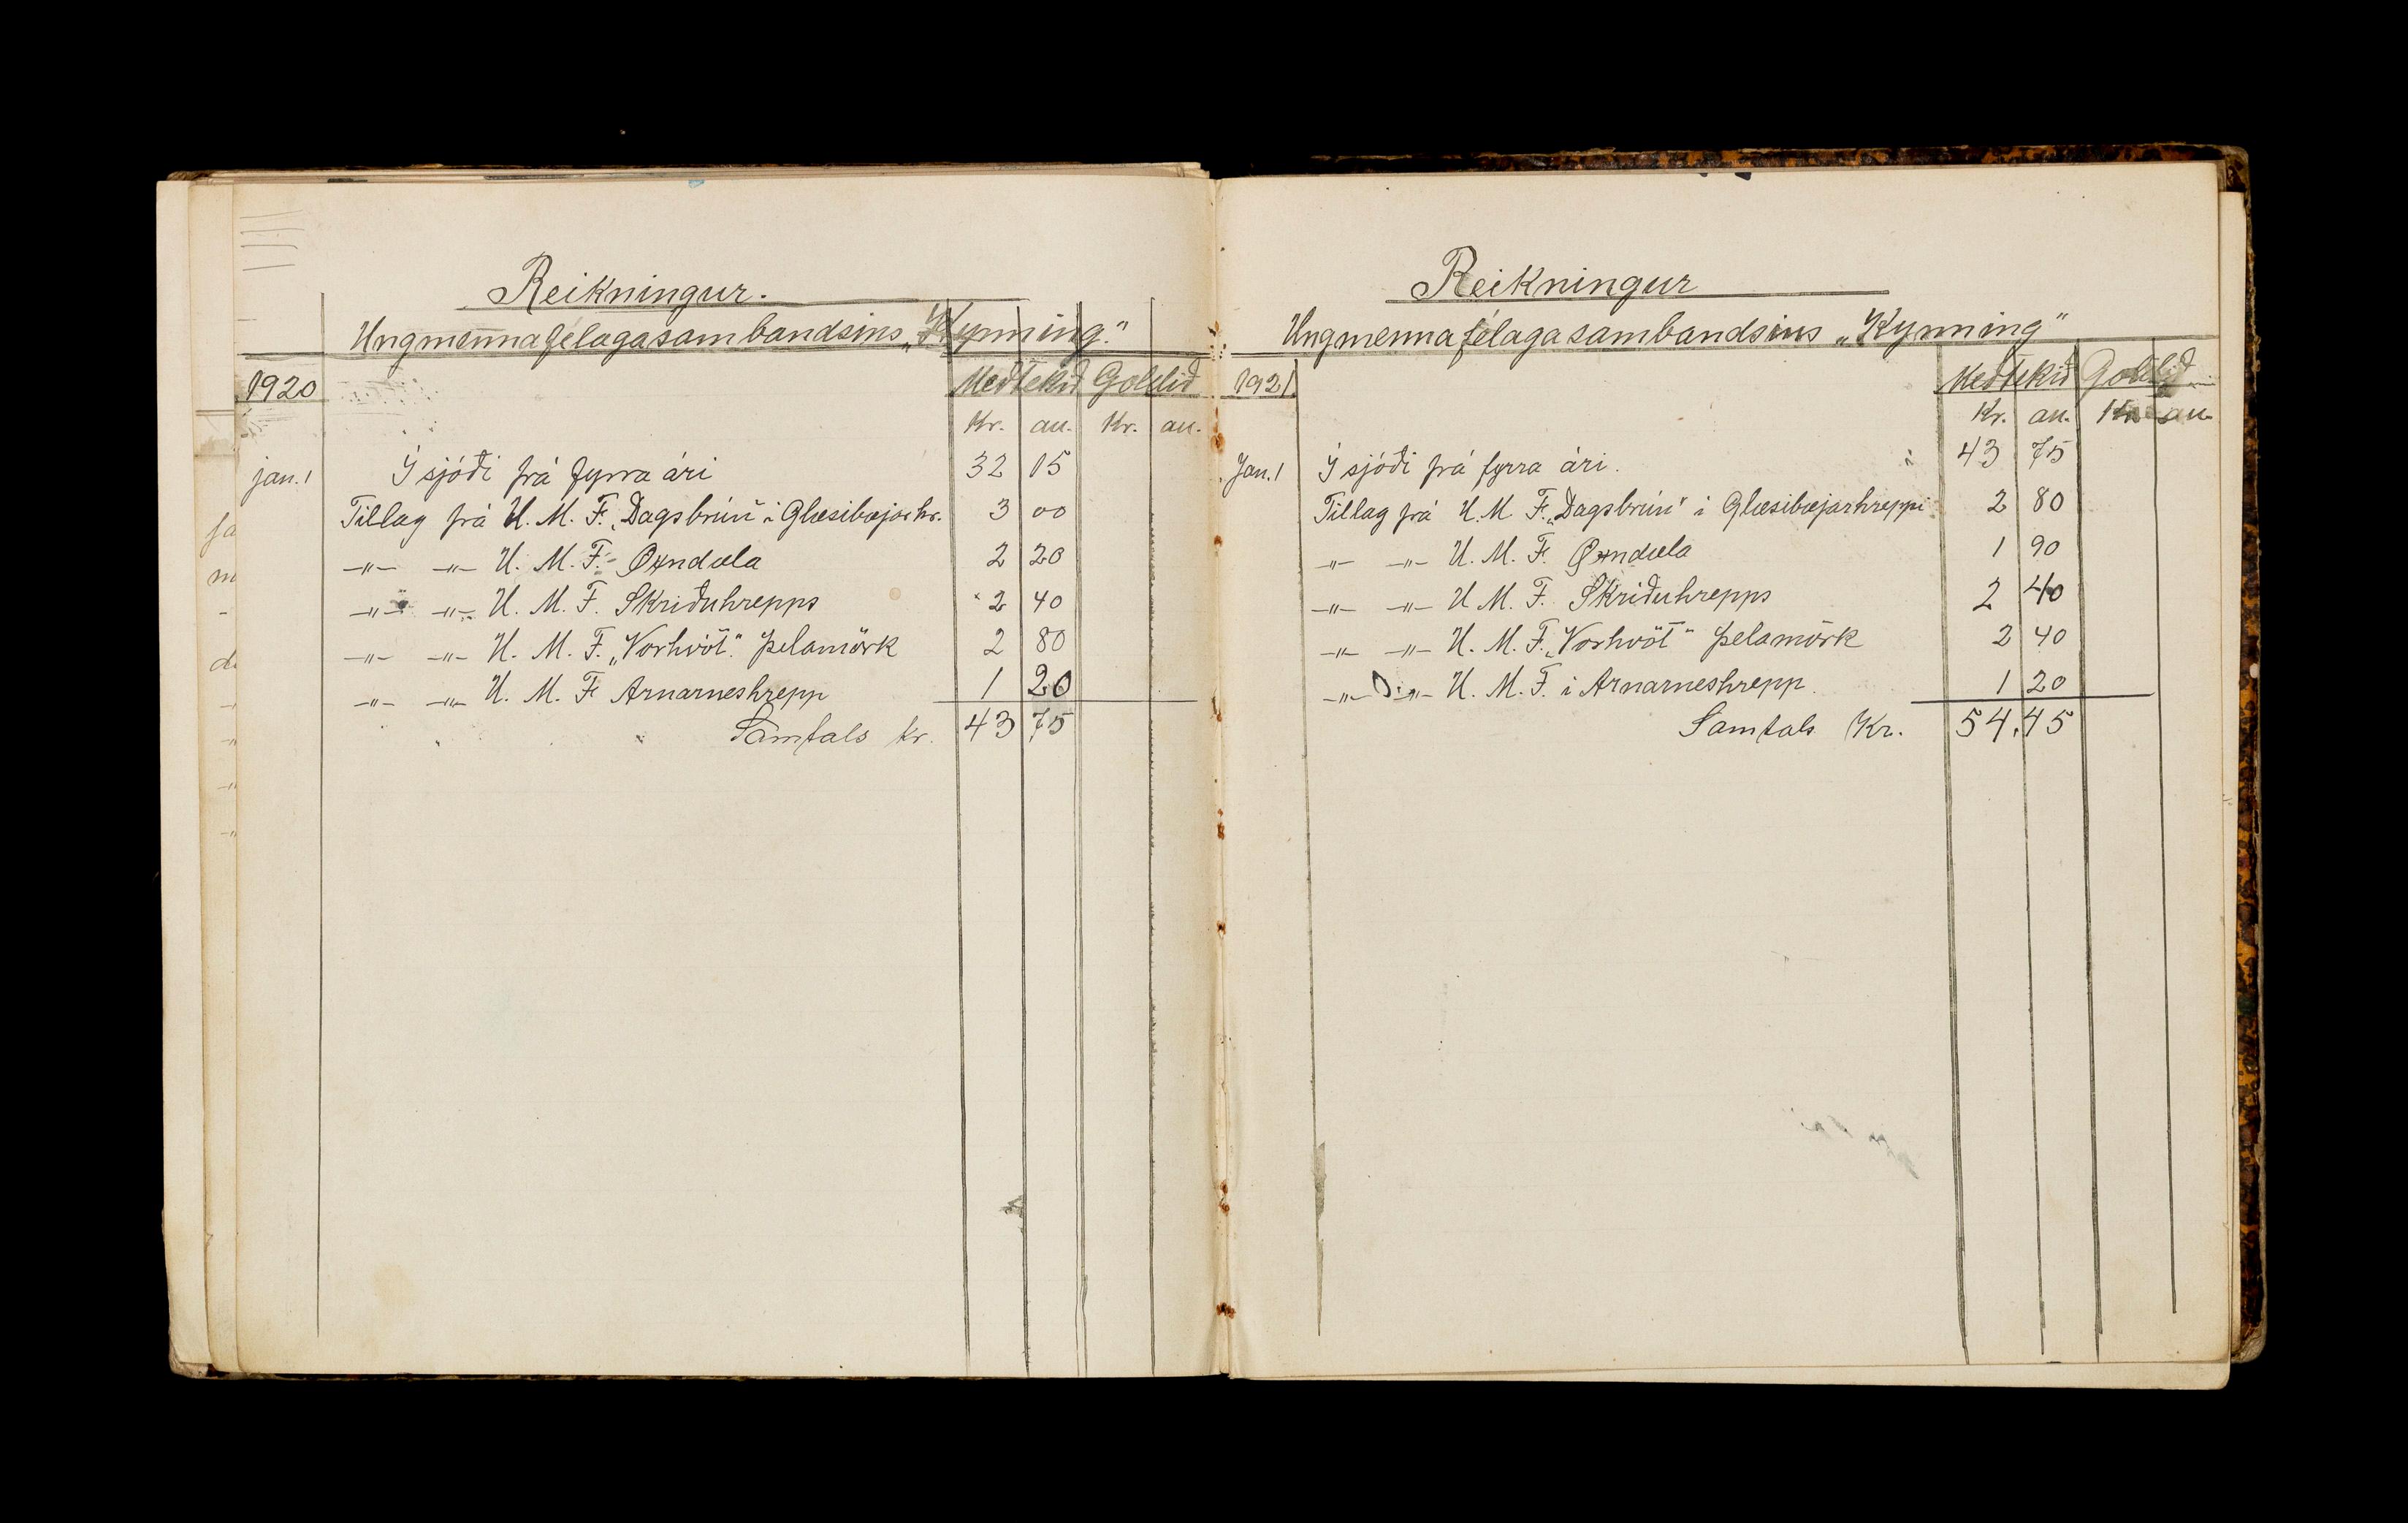 Reikningur.
Ungmennafélagasambandsins „Kynning."
1920 Meðtekið Goldið
Kr. au. Kr. au.
jan. 1 Í sjóði frá fyrra ári 32 15
Tillag frá U. M. F. „Dagsbrún" í Glæsibæjarhr. 3 00
—"— —"— U. M. F. Öxndæla 2 20
—"— —"— U. M. F. Skriðuhrepps 2 40
—"— —"— U. M. F. „Vorhvöt." Þelamörk 2 80
—"— —"— U. M. F. Arnarneshrepp 1 20
Samtals kr. 43 75
Reikningur
Ungmennafélagasambandsins „Kynning"
1921 Meðtekið Goldið
Kr. au. Kr. au.
Jan. 1 Í sjóði frá fyrra ári. 43 75
Tillag frá U. M. F. „Dagsbrún" í Glæsibæjarhreppi 2 80
—"— —"— U. M. F. Öxndæla 1 90
—"— —"— U. M. F. Skriðuhrepps 2 40
—"— —"— U. M. F. „Vorhvöt" Þelamörk 2 40
—"— —"— U. M. F. í Arnarneshrepp. 1 20
Samtals Kr. 54.45